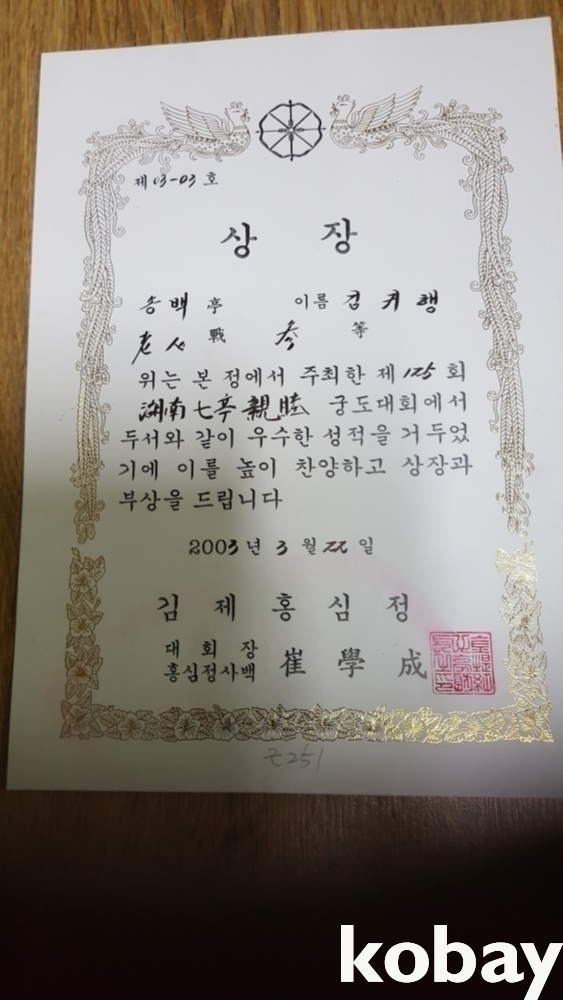 제 03-03 호
상 장
송백 亭 이름 김 귀 행
老人 戰 参 等
위는 본 정에서 주최한 제 125 회
湖南七亭親睦 궁도대회에서
두서와 같이 우수한 성적을 거두었
기에 이를 높이 찬양하고 상장과
부상을 드립니다
2003 년 3 월 22 일
김 제 홍 심 정
대 회 장
홍심정사백 崔 學 成
ㄹ251
kobay